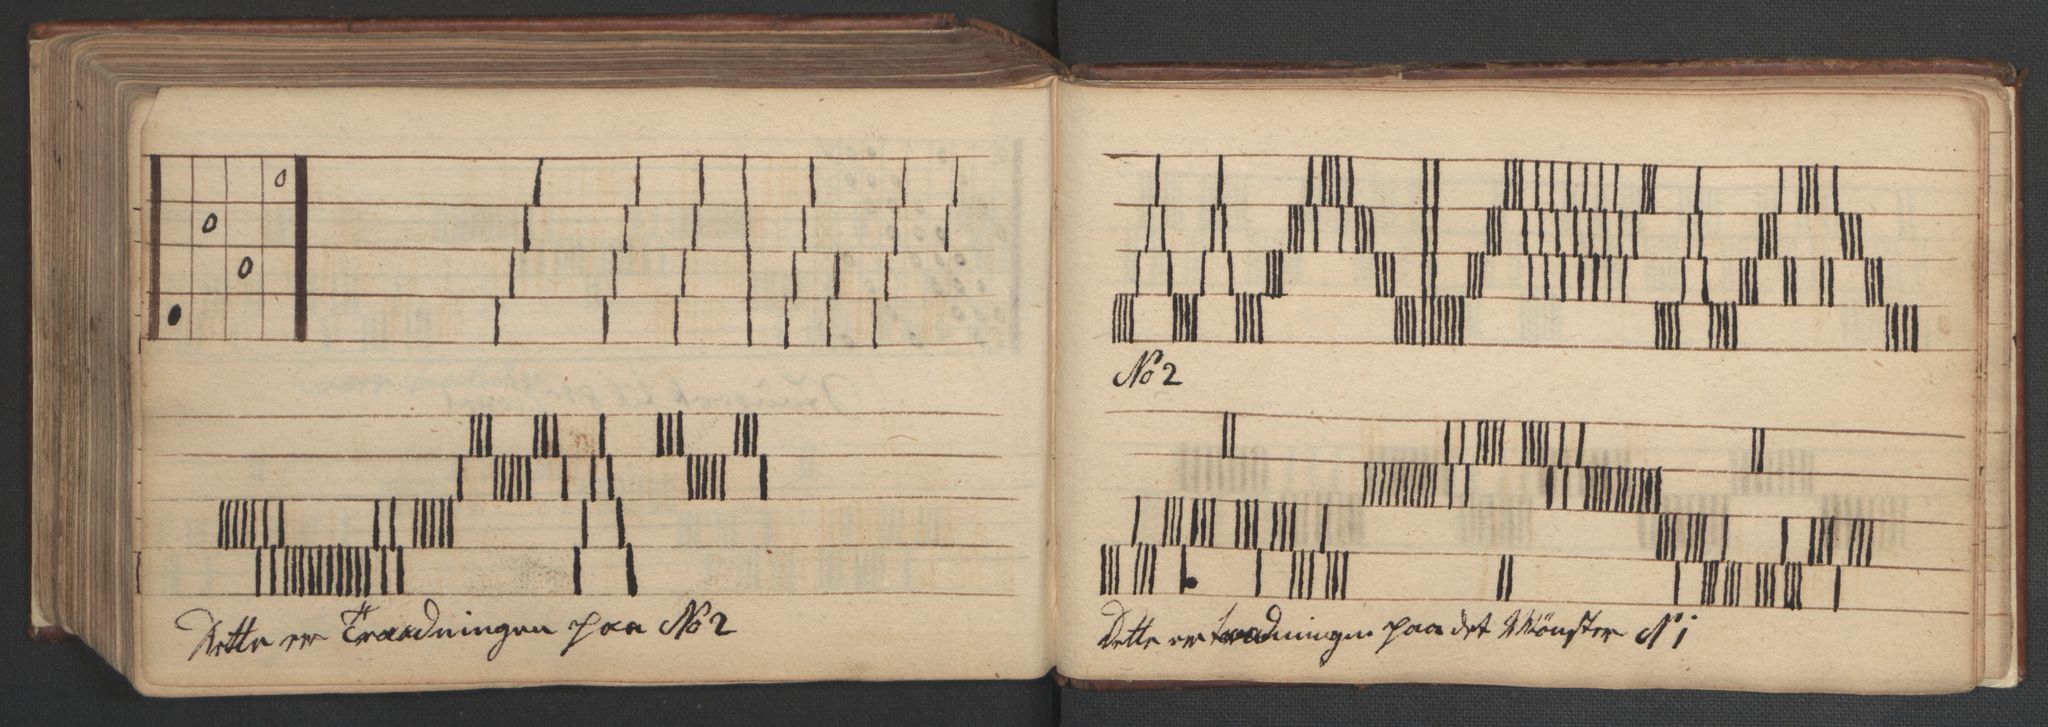 Dette er Traadningen paa No 2
No 2
Dette er traadningen paa det Mönster N i